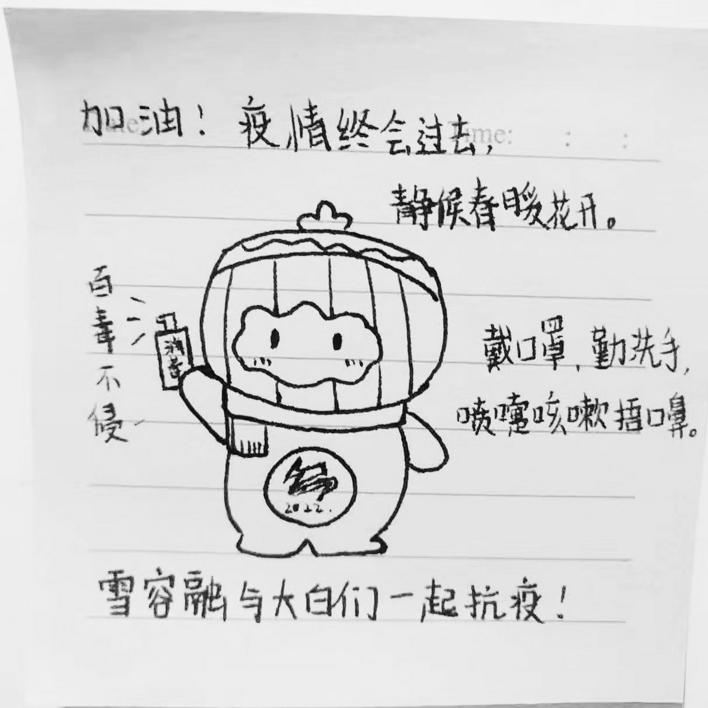 加油！疫情终会过去，
静候春暖花开。
百毒不侵
消毒
戴口罩，勤洗手，
喷嚏咳嗽捂口鼻。
2022.
雪容融与大白们一起抗疫！